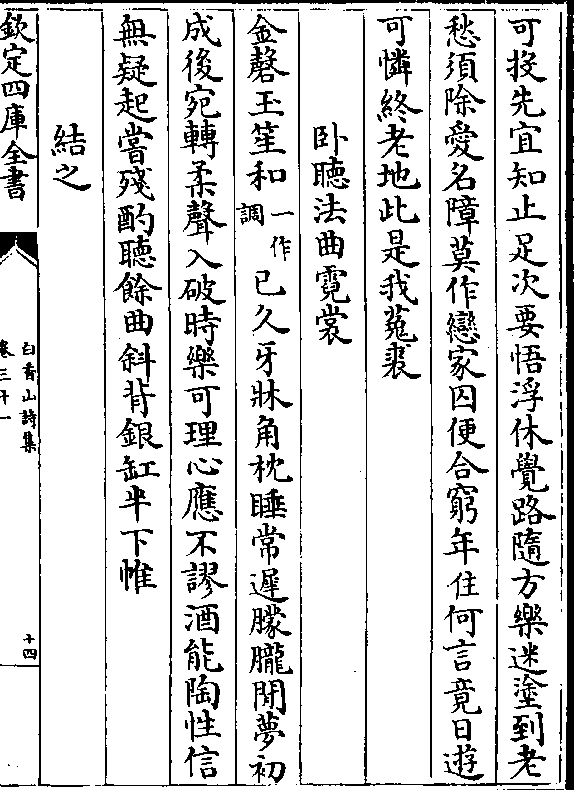 可投先宜知止足次要悟浮休覺路隨方樂迷塗到老
愁須除愛名障莫作戀家囚便合窮年住何言竟日遊
可憐終老地此是我菟裘
卧聴法曲霓裳
金磬玉笙和一作調已久牙牀角枕睡常遲朦朧閒夢初
成後宛轉柔聲入破時樂可理心應不謬酒能陶性信
無疑起嘗殘酌聽餘曲斜背銀缸半下帷
結之
欽定四庫全書
白香山詩集
卷三十一
十四